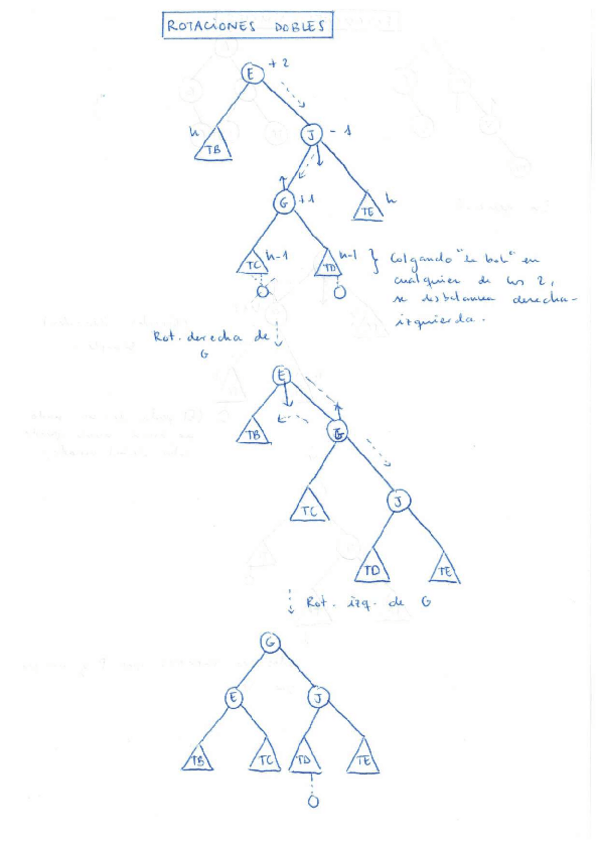 ROTACIONES DOBLES
E +2
h TB J -1
G +1 TE h
TC h-1 TD h-1 } Colgando "la bola" en
cualquier de los 2,
se desbalancea derecha-
izquierda.
Rot. derecha de
G
E
TB G
TC J
TD TE
Rot. izq. de G
G
E J
TB TC TD TE